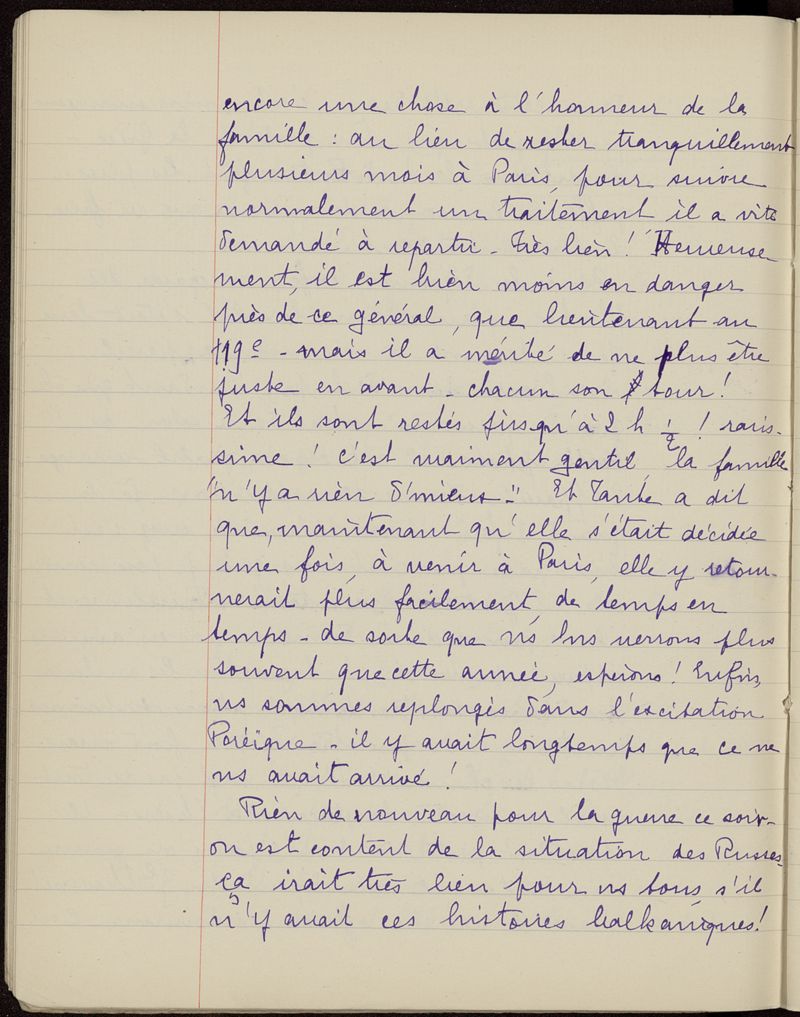 encore une chose à l'honneur de la
famille : au lieu de rester tranquillement
plusieurs mois à Paris, pour suivre
normalement un traitement il a vite
demandé à repartir - très bien ! Heureuse
ment, il est bien moins en danger
près de ce général, que lieutenant au
119e - mais il a mérité de ne plus être
juste en avant - chacun son tour !
Et ils sont restés jusqu'à 2 h 1/2 ! raris-
sime ! c'est vraiment gentil, la famille
"n'y a rien d'mieux -" Et Tante a dit
que, maintenant qu'elle s'était décidée
une fois, à venir à Paris, elle y retour-
nerait plus facilement, de temps en
temps - de sorte que ns les verrons plus
souvent que cette année, espérons ! Enfin,
ns sommes replongés dans l'excitation
- il y avait longtemps que ce ne
ns avait arrivé !
Rien de nouveau pour la guerre ce soir -
on est content de la situation des Russes -
ça irait très bien pour ns tous, s'il
n'y avait ces histoires balkaniques !